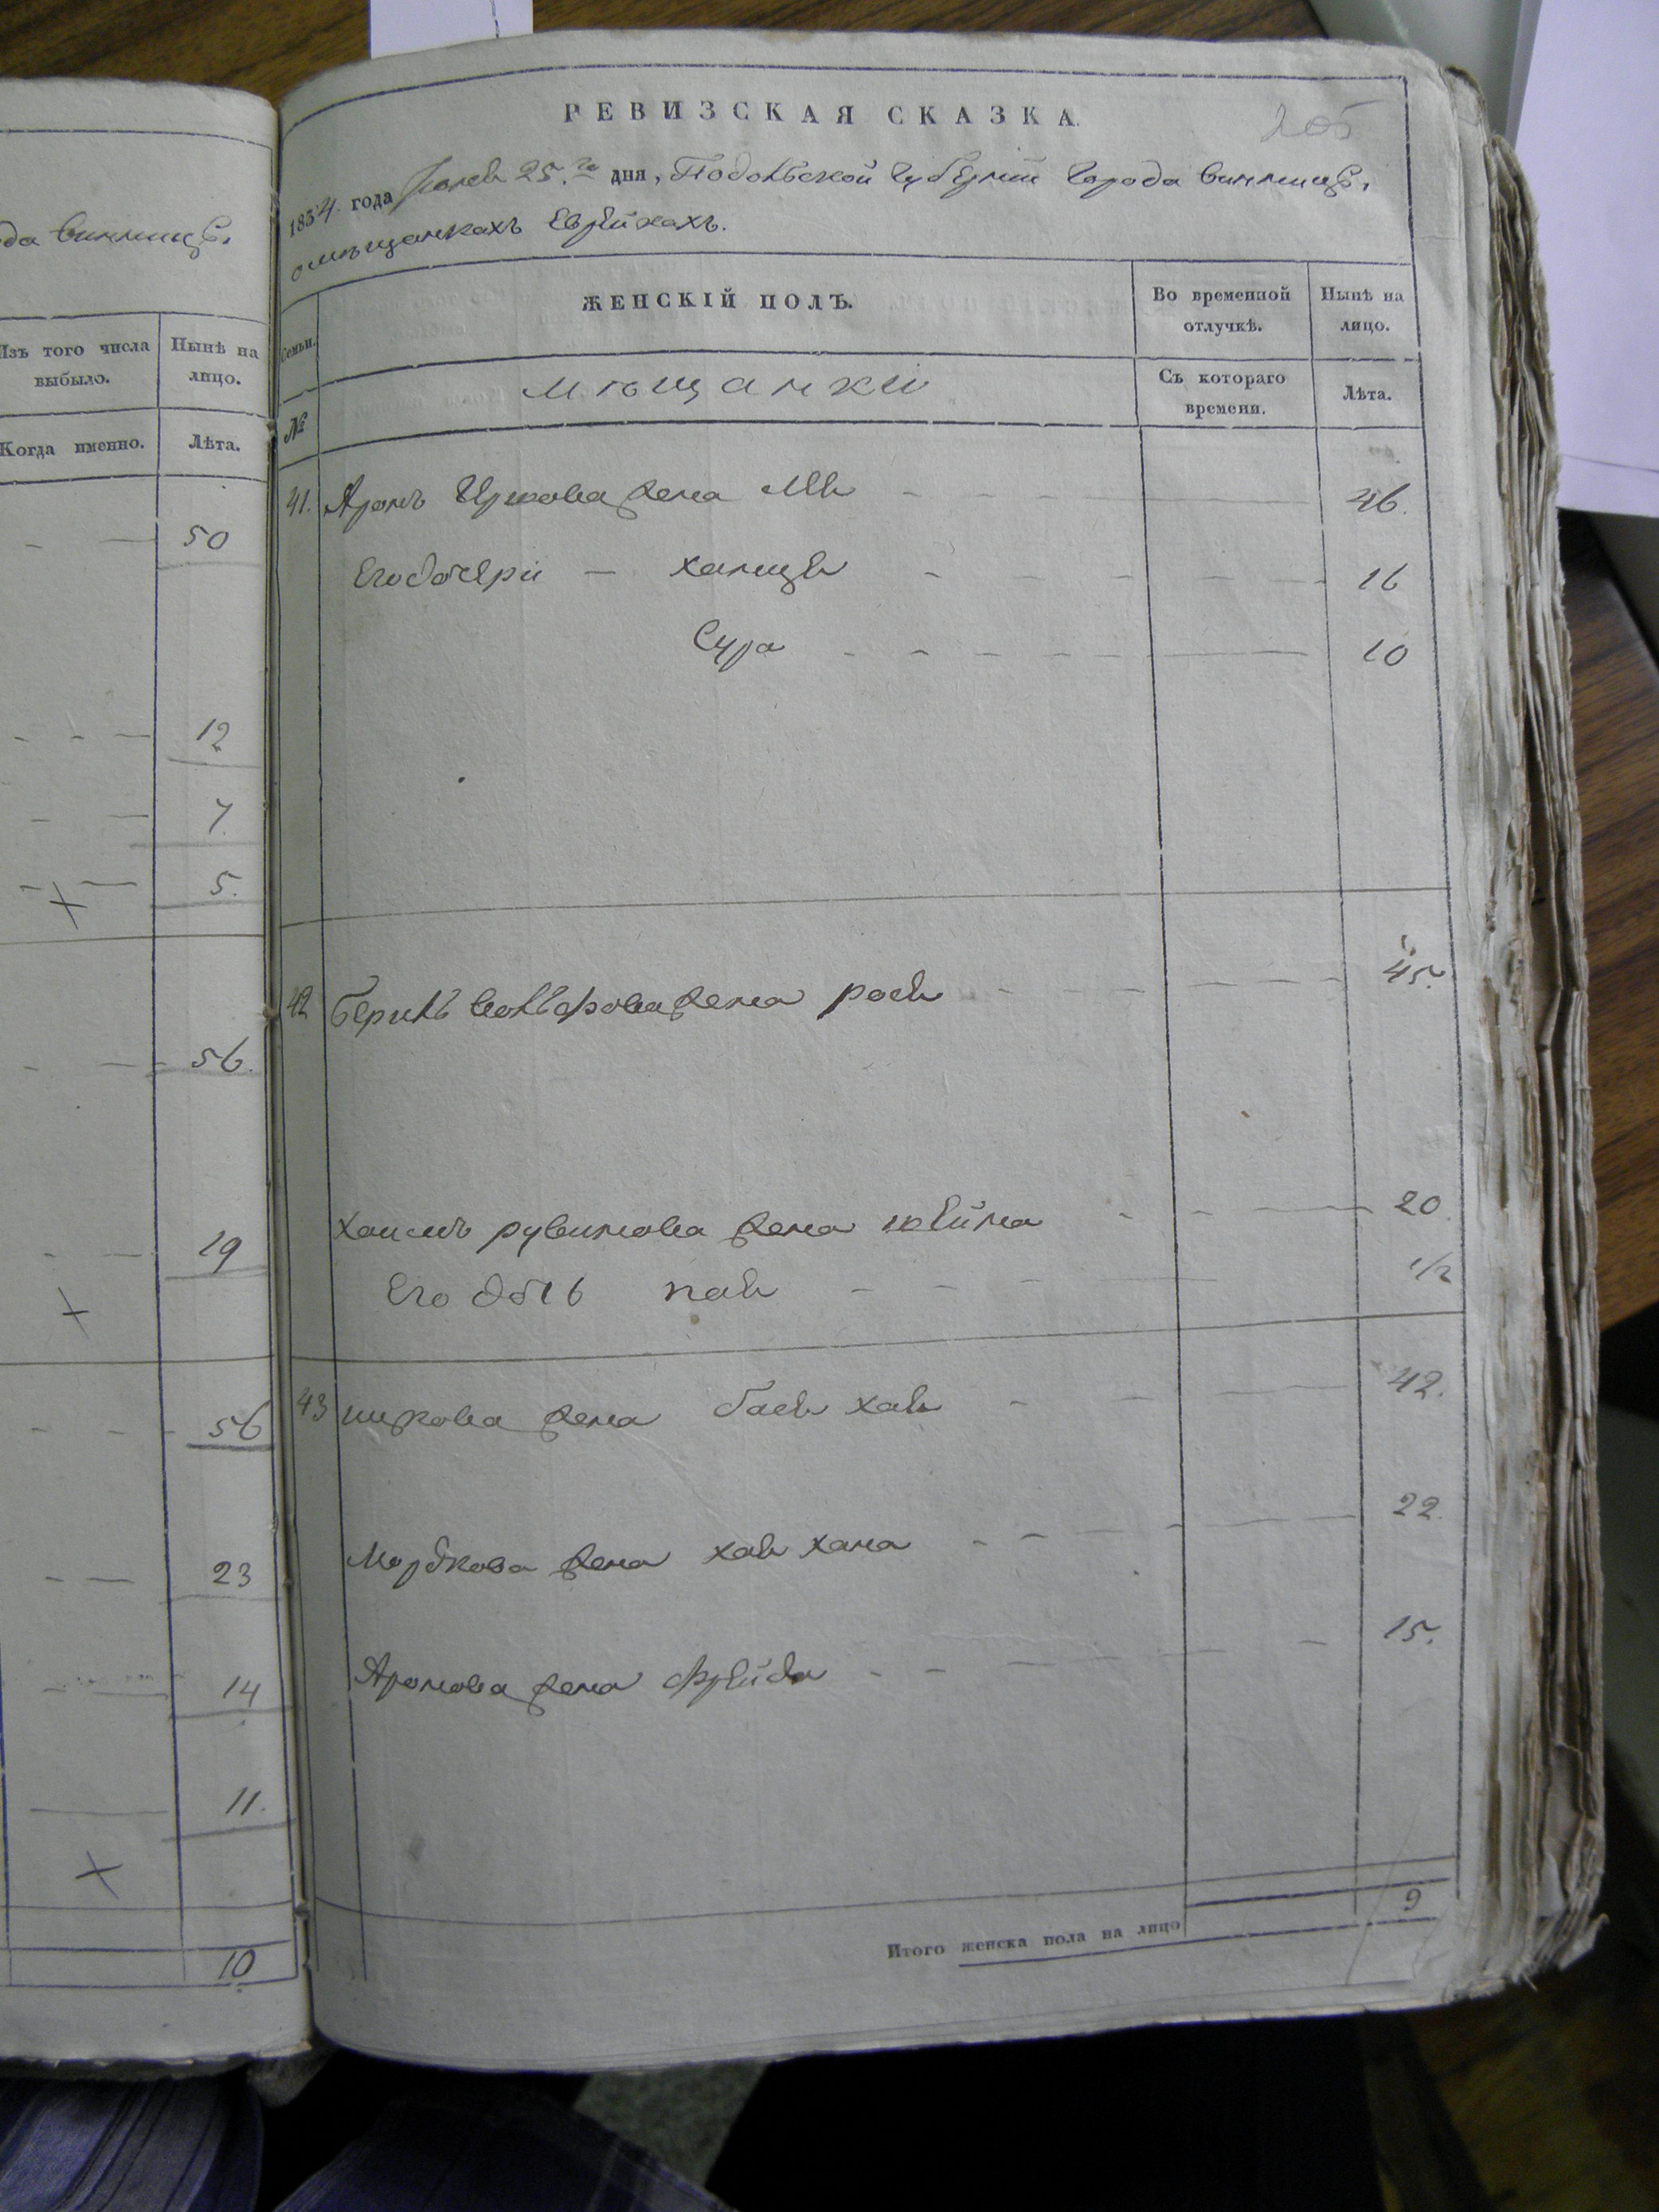 да Винницы.
Изъ того числа выбыло.
Ныне на лицо.
Когда именно.
Лѣта.
50
12
7
5.
56.
19
56
23
14
11.
10
РЕВИЗСКАЯ СКАЗКА.
205
1834. года 25.го дня, Подольской Губерніи Города Винницы.
о мѣщанкахъ Еврейкахъ.
Семьи.
ЖЕНСКІЙ ПОЛЪ.
Во временной отлучкѣ.
Нынѣ на лицо.
№
мѣщанки
Съ котораго времени.
Лѣта.
41. Аронъ Ицкова жена 46.
Его дочери — ханця 16
Сура 10
42 Берика жена рося 45.
хаимъ рувинова жена шейна 20
Его дочь пая 1/2
43 ицкова жена бася хая 42.
Мордкова жена хая хана 22.
Аронова жена фрейда 15.
Итого женска пола на лицо 9